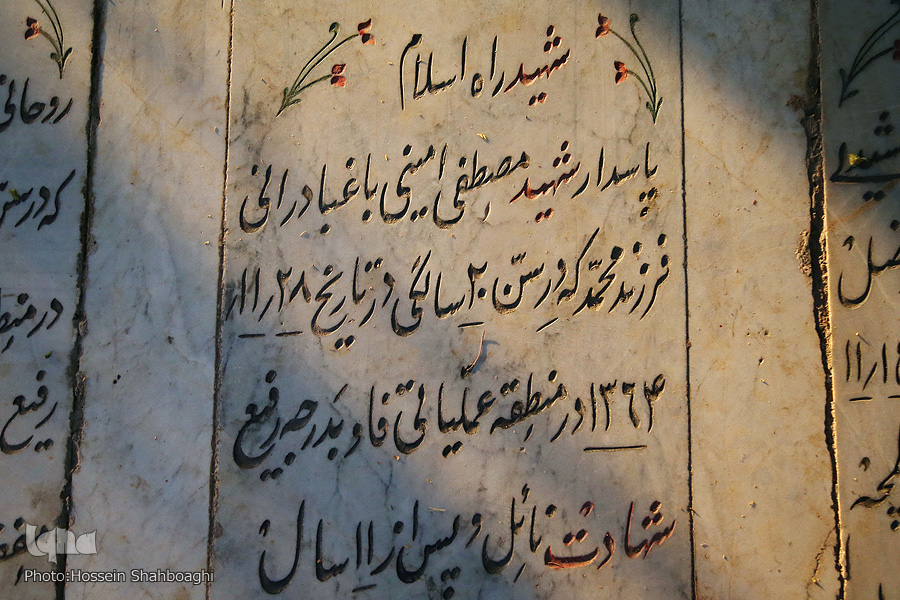 شهید راه اسلام
پاسدار شهید مصطفی امینی باغبادرانی
فرزند محمّد که در سنّ ۲۰ سالگی در تاریخ ۲۸ر۱۱ر
۱۳۶۴ در منطقه عملیاتی فاو بدرجه رفیع
شهادت نائل و پس از ۱۱ سال
روحانی
که در سنّ
در منطقه
رفیع
۱۱ر
iqna
Photo:Hossein Shahboaghi